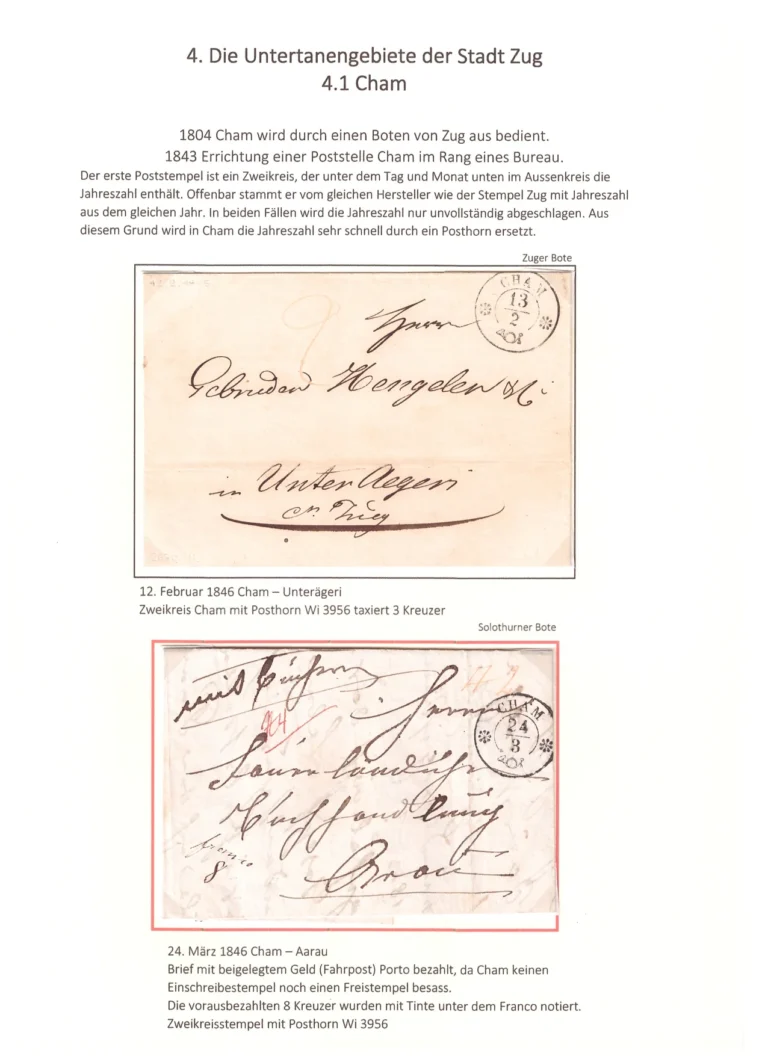 4. Die Untertanengebiete der Stadt Zug
4.1 Cham
1804 Cham wird durch einen Boten von Zug aus bedient.
1843 Errichtung einer Poststelle Cham im Rang eines Bureau.
Der erste Poststempel ist ein Zweikreis, der unter dem Tag und Monat unten im Aussenkreis die
Jahreszahl enthält. Offenbar stammt er vom gleichen Hersteller wie der Stempel Zug mit Jahreszahl
aus dem gleichen Jahr. In beiden Fällen wird die Jahreszahl nur unvollständig abgeschlagen. Aus
diesem Grund wird in Cham die Jahreszahl sehr schnell durch ein Posthorn ersetzt.
Zuger Bote
CHAM
13
2
Herrn
Gebrüder
in Unter Aegeri
Ct. Zug
12. Februar 1846 Cham – Unterägeri
Zweikreis Cham mit Posthorn Wi 3956 taxiert 3 Kreuzer
Solothurner Bote
mit
Herrn
CHAM
24
3
Sauerländische
Buchhandlung
franco
8
Arau
24. März 1846 Cham – Aarau
Brief mit beigelegtem Geld (Fahrpost) Porto bezahlt, da Cham keinen
Einschreibestempel noch einen Freistempel besass.
Die vorausbezahlten 8 Kreuzer wurden mit Tinte unter dem Franco notiert.
Zweikreisstempel mit Posthorn Wi 3956